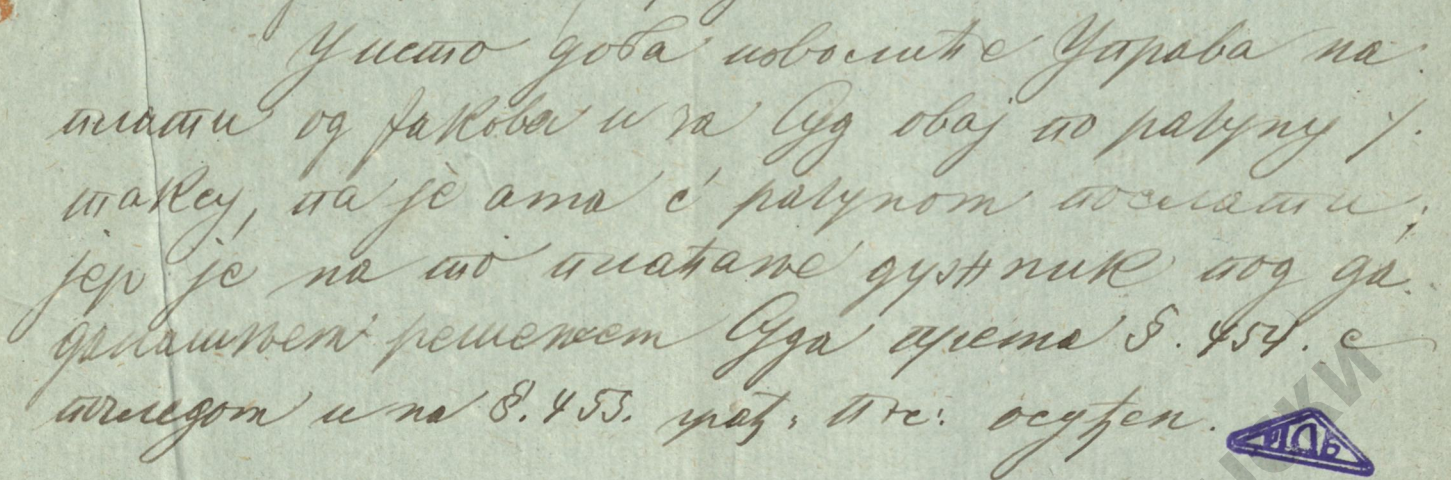 У исто доба изволиће Управа на
платити од Јакова и за Суд овај по рачуну ·/·
таксу, па је ама с рачуном послати,
јер је на то плаћање дужник под да
данашњем решењем Суда према §. 454. с
погледом и на §. 453. грађ: пос: осуђен.